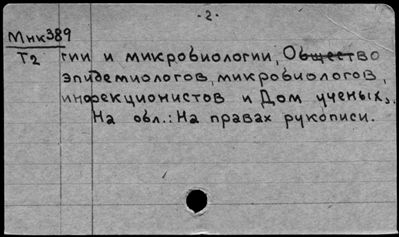 - 2. -
Мнк389
Т2 гии и микробиологии, Общество
эпидемиологов, микробиологов,
инфекционистов и Дом ученых,.
На обл.: На правах рукописи.